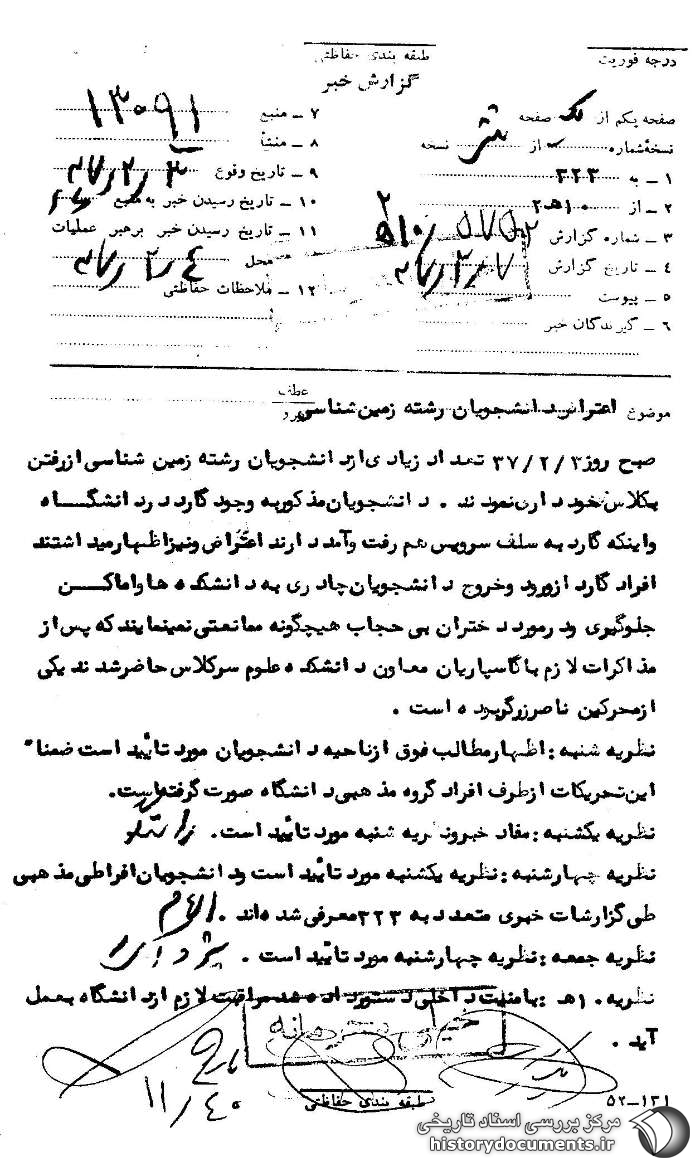 درجه فوریت
طبقه بندی حفاظتی
گزارش خبر
صفحه یکم از یک صفحه
نسخه شماره از نسخه
۱ ـ به ۳۲۳
۲ ـ از ۱۰ ه‍ ۲
۳ ـ شماره گزارش
۴ ـ تاریخ گزارش ۳۷/۲/۷
۵ ـ پیوست
۶ ـ گیرندگان خبر
۷ ـ منبع ۱۳۰۹۱
۸ ـ منشأ
۹ ـ تاریخ وقوع ۳۷/۲/۳
۱۰ ـ تاریخ رسیدن خبر به منبع
۱۱ ـ تاریخ رسیدن خبر برهبر عملیات
محل ۳۷/۲/۴
۱۲ ـ ملاحظات حفاظتی
موضوع اعتراض دانشجویان رشته زمین شناسی
عطف
صبح روز ۳۷/۲/۳ تعداد زیادی از دانشجویان رشته زمین شناسی از رفتن
بکلاس خودداری نمودند . دانشجویان مذکور به وجود گارد در دانشگاه
و اینکه گارد به سلف سرویس هم رفت و آمد دارند اعتراض و نیز اظهار میداشتند
افراد گارد از ورود و خروج دانشجویان چادری به دانشکده ها و اماکن
جلوگیری و در مورد دختران بی حجاب هیچگونه ممانعتی نمینمایند که پس از
مذاکرات لازم با گاسپاریان معاون دانشکده علوم سرکلاس حاضر شدند یکی
از محرکین ناصر زرگر بوده است .
نظریه شنبه : اظهار مطالب فوق از ناحیه دانشجویان مورد تأیید است ضمنا"
این تحریکات از طرف افراد گروه مذهبی دانشگاه صورت گرفته است.
نظریه یکشنبه : مفاد خبر و نظریه شنبه مورد تأیید است.
نظریه چهارشنبه : نظریه یکشنبه مورد تأیید است و دانشجویان افراطی مذهبی
طی گزارشات خبری متعدد به ۳۲۳ معرفی شده اند .
نظریه جمعه : نظریه چهارشنبه مورد تأیید است .
نظریه ۱۰ ه‍ : بامنیت داخلی دستور داده شد مراقبت لازم از دانشگاه بعمل
آید .
خیلی محرمانه
۱۱/۴۰
طبقه بندی حفاظتی
۵۲ـ۱۳۱
مرکز بررسی اسناد تاریخی
historydocuments.ir